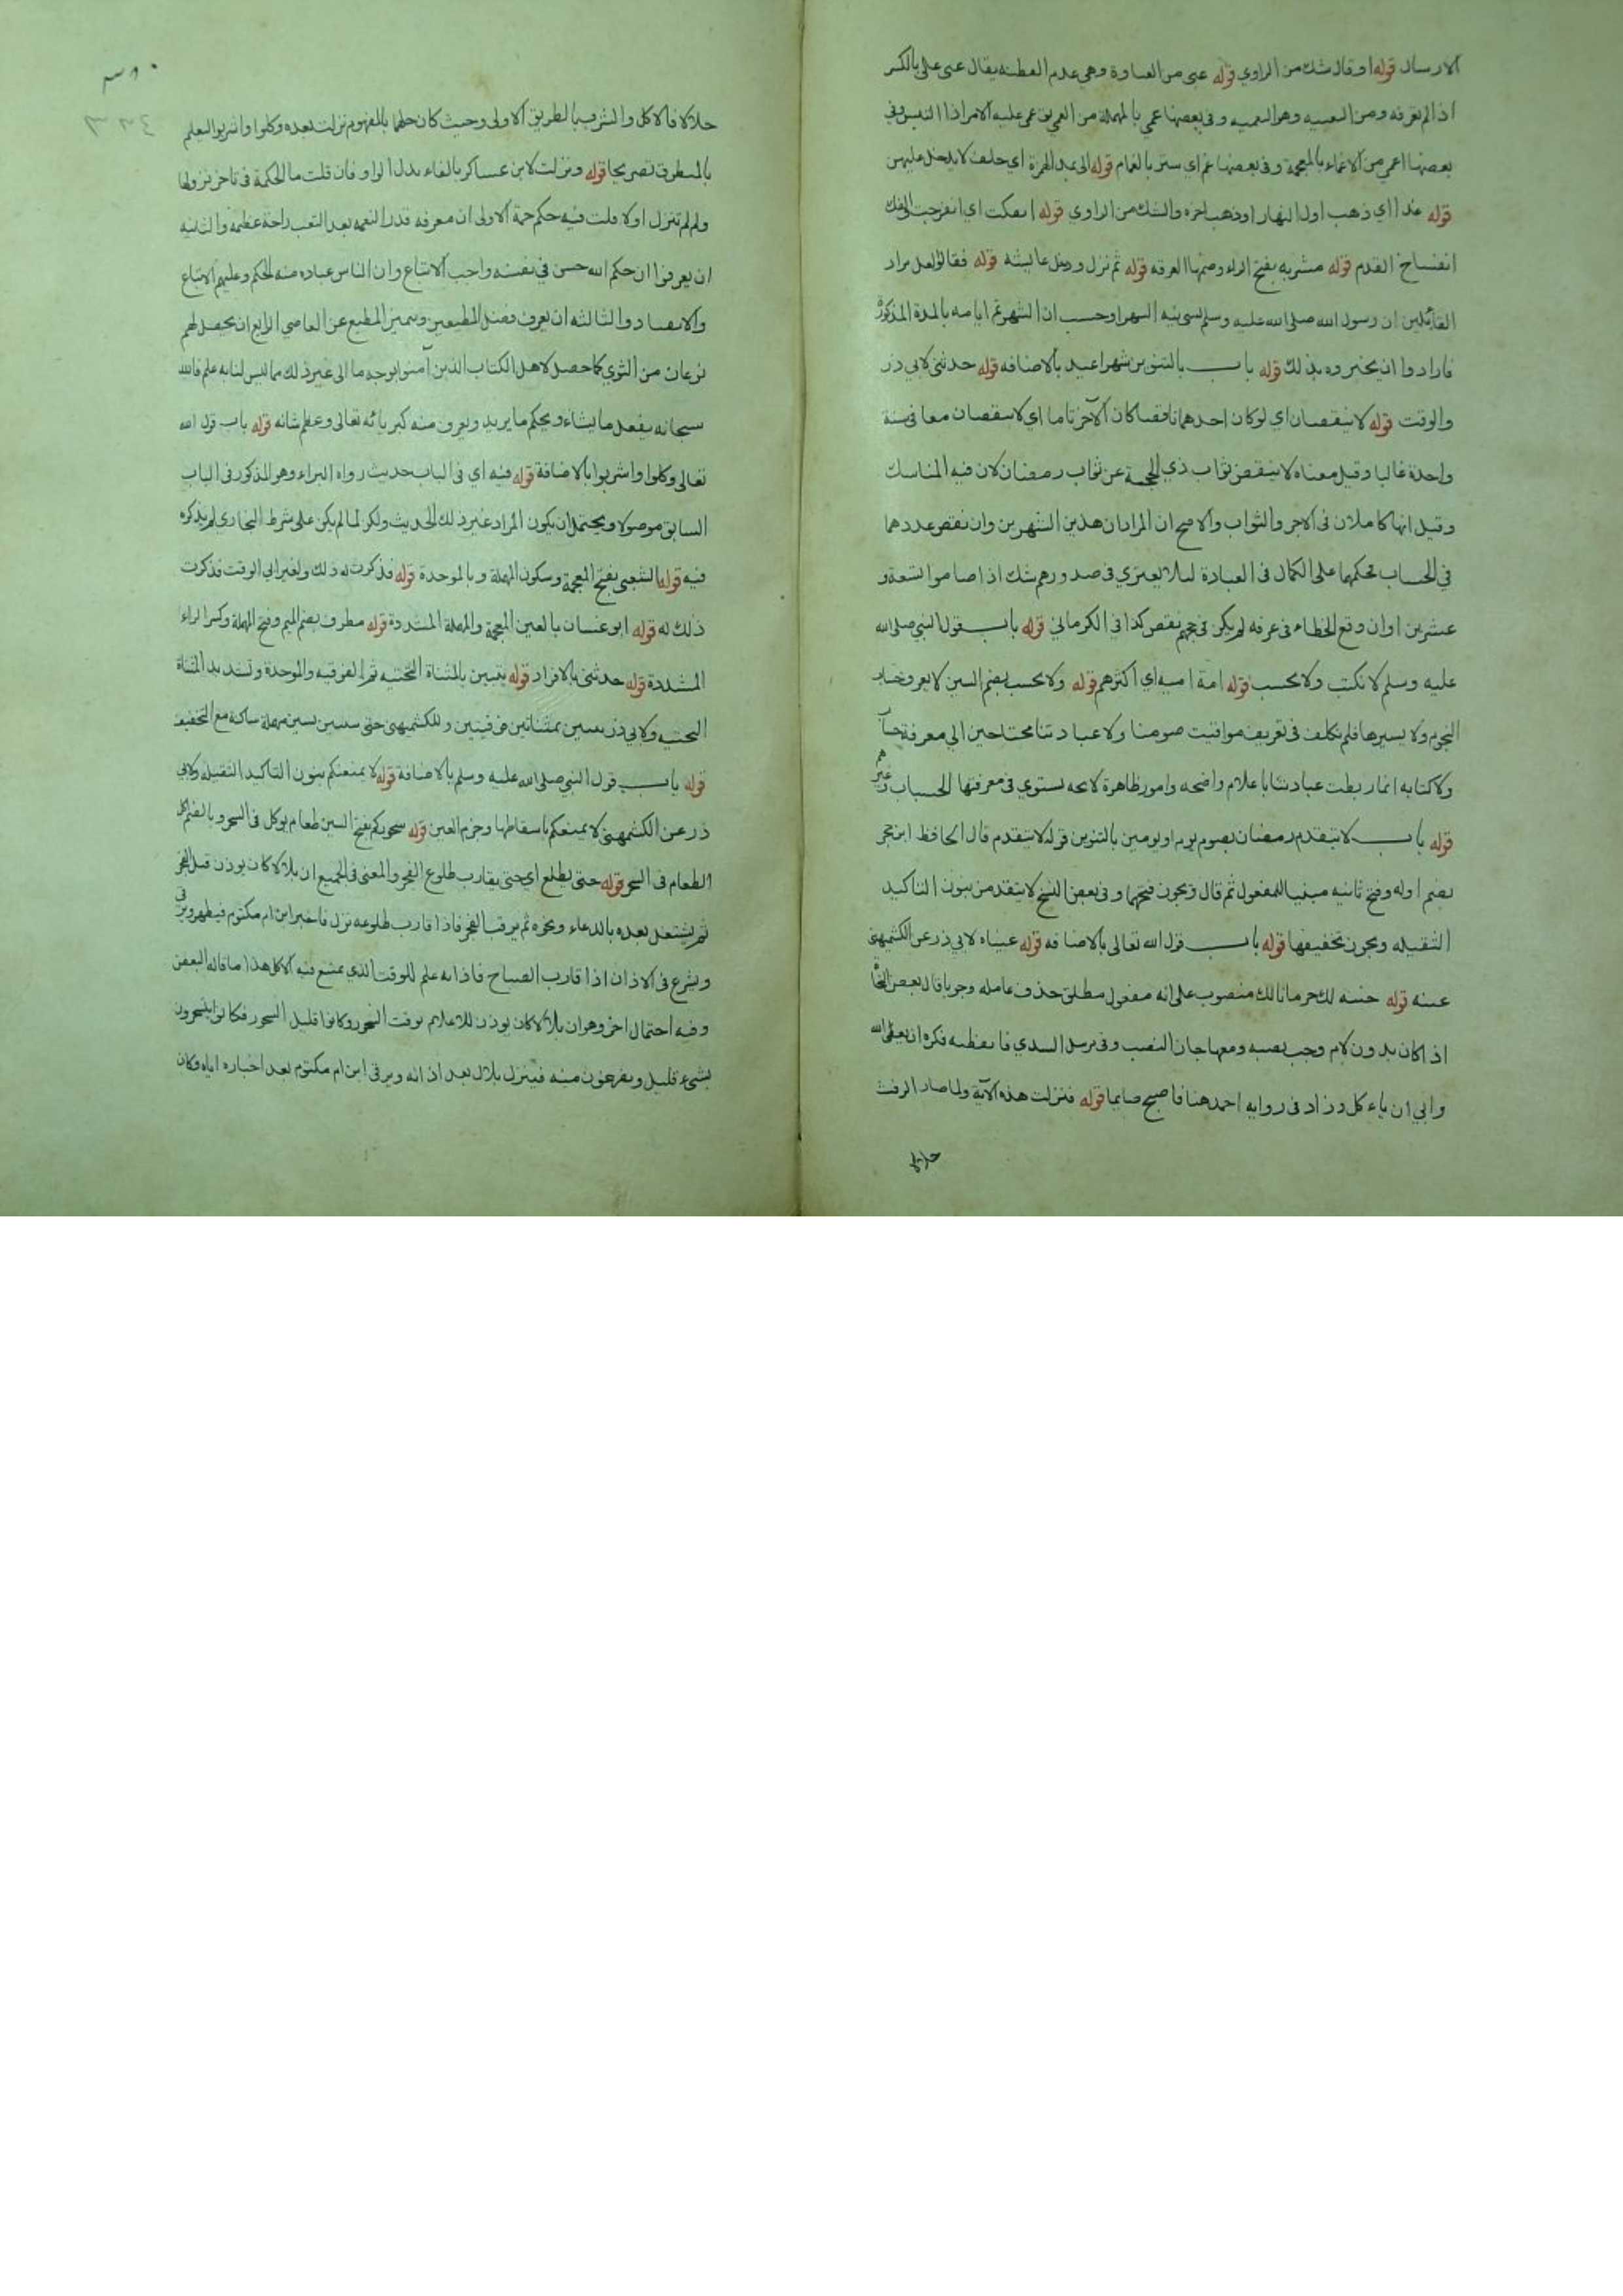 الارسال قوله او قال شك من الراوي قوله غبى من الغباوة وهى عدم الفطنه يقال غبى على بالكسر
اذا لم يعرفه ومن التعميه وفى بعضها عمي بالمهملة من العمى يق عمى عليه الامر اذا التبس وفي
بعضها اغمي من الاغماء بالمعجمة وفى بعضها غم اي ستر بالغمام قوله الى بمد الهمزة اي حلف لا يدخل عليهن
قوله غدا اي ذهب اول النهار او ذهب اخره والشك من الراوي قوله انفكت اي انفرجت الفك
انفساخ القدم قوله مشربه بفتح الراء وضمها الغرفه قوله ثم نزل ودخل عايشه قوله فقالوا لعل مراد
القائلين ان رسول الله صلى الله عليه وسلم الشهر وحسب ان الشهر تم ايامه بالمدة المذكورة
فارادوا ان يخبروه بذلك قوله باب بالتنوين شهرا عيد بالاضافه قوله حدثنى لابي ذر
والوقت قوله لا ينقصان اي لو كان احدهما ناقصا كان الآخر تاما اي لا ينقصان معا فى سنة
واحدة غالبا وقيل معناه لا ينقص ثواب ذي الحجة عن ثواب رمضان لان فيه المناسك
وقيل انها كاملان فى الاجر والثواب والاصح ان المراد ان هذين الشهرين وان نقص عددهما
في الحساب فحكمها على الكمال فى العبادة لئلا يعتري فى صدورهم شك اذا صاموا تسعة و
عشرين او ان وقع الخطاء فى عرفه لم يكن فى حجهم نقص كذا في الكرماني قوله باب قول النبي صلى الله
عليه وسلم لا نكتب ولا نحسب قوله امة اميه اي اكثرهم قوله ولا نحسب بضم السين لا يعرف حساب
النجوم ولا تسييرها فلم نكلف فى تعريف مواقيت صومنا ولا عبادتنا محتاجين الي معرفة حساب
ولا كتابه انما ربطت عبادتنا باعلام واضحه وامور ظاهرة لائحه يستوي فى معرفتها الحساب وغيرهم
قوله باب لا يتقدم رمضان بصوم يوم او يومين بالتنوين قوله لا يتقدم قال الحافظ ابن حجر
بضم اوله وفتح ثانيه مبنيا للمفعول ثم قال ويجوز فتحهما وفى بعض النسخ لا يتقدمن بنون التاكيد
الثقيله ويجوز تخفيفها قوله باب قول الله تعالى بالاضافه قوله عيناه لابي ذر عن الكشميهنى
عينه قوله خيبة لك حرمانا لك منصوب على انه مفعول مطلق حذف عامله وجوبا قال بعض النحاة
اذا كان بدون لام وجب نصبه ومعها جاز النصب وفى مرسل السدي فايقظته فكره ان يعصى الله
وابي ان ياءكل وزاد فى روايه احمد هنا فاصبح صايما قوله فنزلت هذه الآية ولما صار الرفث
حلالا
حلالا فالاكل والشرب بالطريق الاولى وحيث كان حلهما بالمفهوم نزلت بعده وكلوا واشربوا ليعلم
بالمنطوق تصريحا قوله ونزلت لابن عساكر بالفاء بدل الواو فان قلت ما الحكمة فى تاخر نزولها
ولم لم تنزل اولا قلت فيه حكم جمة الاولى ان معرفه قدر النعمه بعد التعب راحة عظيمة والثانيه
ان يعرفوا ان حكم الله حسن في نفسه واجب الاتباع وان الناس عباده منه الحكم وعليهم الاتباع
والانقياد والثالثه ان يعرف فضل المطيعين ويتميز المطيع عن العاصي الرابع ان يحصل لهم
نوعان من الثوي كما حصل لاهل الكتاب الذين آمنوا بوجه ما الى غير ذلك مما ليس لنا به علم فانه
سبحانه يفعل ما يشاء ويحكم ما يريد ويعرف منه كبريائه تعالى وعظم شانه قوله باب قول الله
تعالى وكلوا واشربوا بالاضافة قوله فيه اي فى الباب حديث رواه البراء وهو المذكور فى الباب
السابق موصولا ويحتمل ان يكون المراد غير ذلك الحديث ولكن لما لم يكن على شرط البخاري لم يذكره
فيه قوله الشعبى بفتح المعجمة وسكون المهملة وبالموحدة قوله فذكرت له ذلك ولغير ابي الوقت فذكرت
ذلك له قوله ابو غسان بالغين المعجمة والمهملة المشددة قوله مطرف بضم الميم وفتح المهملة وكسر الراء
المشددة قوله حدثنى بالافراد قوله يتبين بالمثناة التحتيه ثم الفوقيه والموحدة وتشديد المثناة
التحتيه ولابي ذر بمثناتين فوقيتين وللكشميهنى حتى يستبين بسين مهملة ساكنة مع التخفيف
قوله باب قول النبي صلى الله عليه وسلم بالاضافة قوله لا يمنعنكم بنون التاكيد الثقيلة ولابي
ذر عن الكشميهنى لا يمنعكم باسقاطها وجزم العين قوله سحوركم بفتح السين طعام يوكل فى السحر وبالضم اكل
الطعام فى السحر قوله حتى يطلع اي حتى يقارب طلوع الفجر والمعنى فى الجميع ان بلالا كان يوذن قبل الفجر
ثم يشتغل بعده بالدعاء ونحوه ثم يرقب الفجر فاذا قارب طلوعه نزل فاخبر ابن ام مكتوم فيطهر ويرقى
ويشرع فى الاذان اذا قارب الصباح فاذانه علم للوقت الذي يمتنع فيه الاكل هذا ما قاله البعض
وفيه احتمال اخر وهو ان بلالا كان يوذن للاعلام بوقت السحور وكانوا قليل السحور فكانوا يتسحرون
بشيء قليل ويفرغون منه فينزل بلال بعد اذانه ويرقى ابن ام مكتوم بعد اخباره اياه وكان